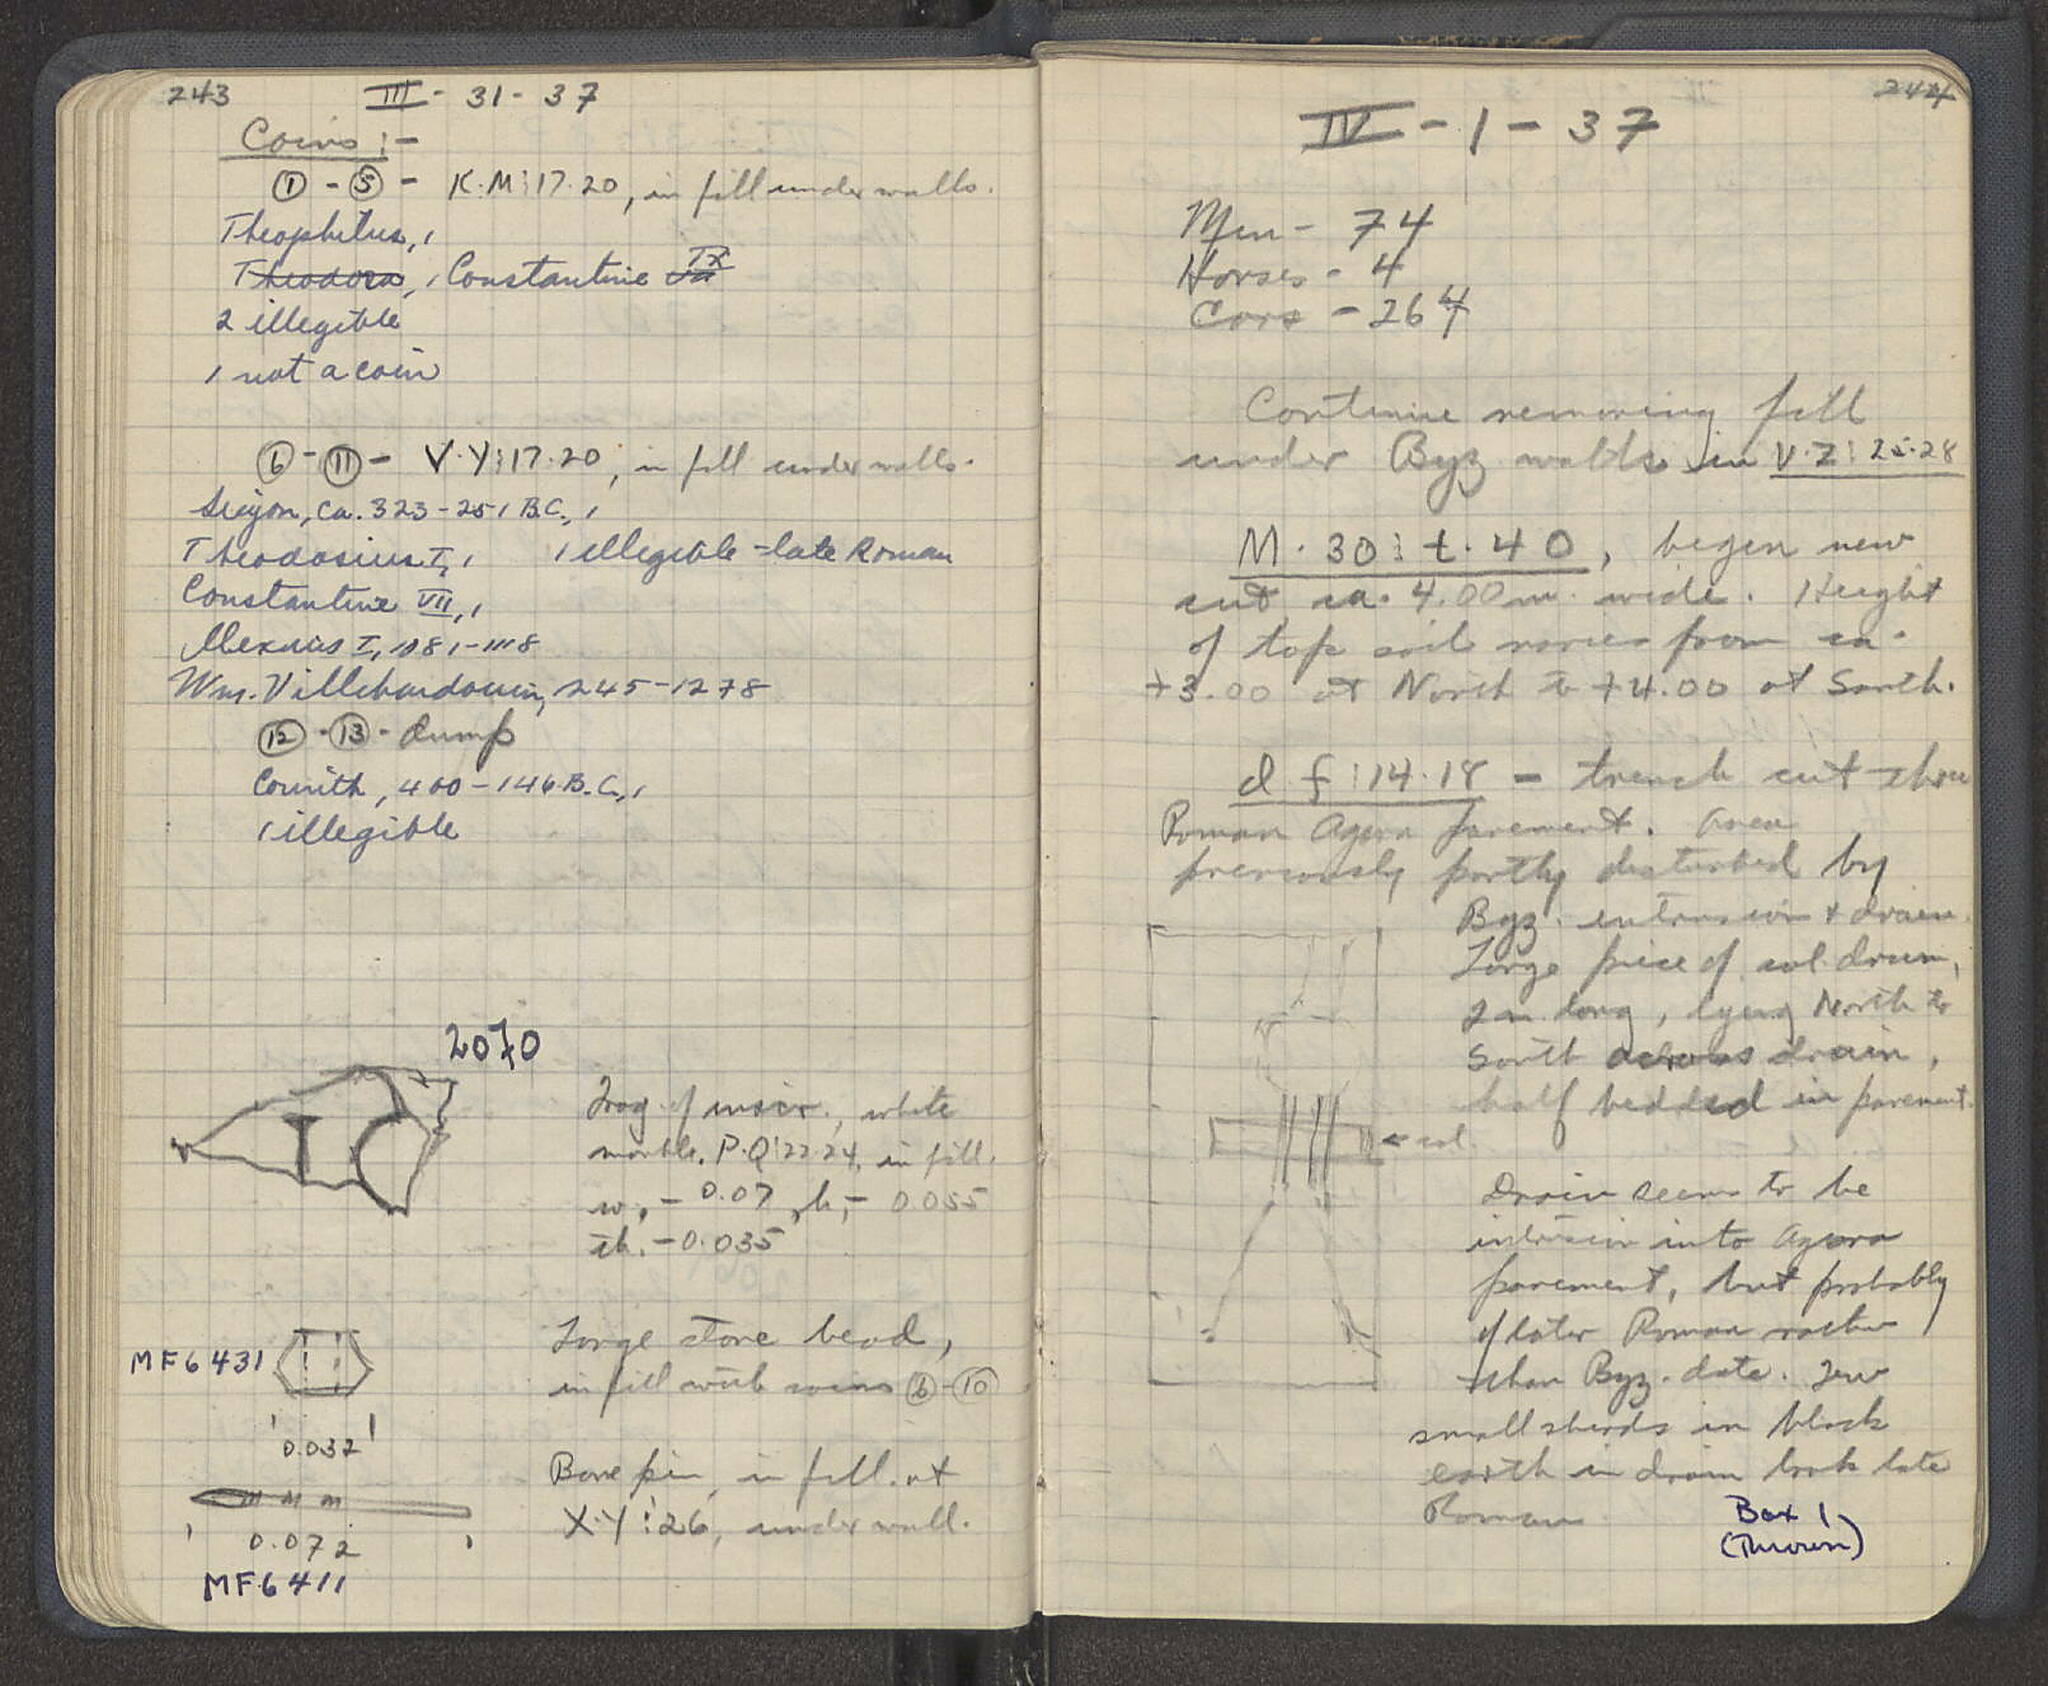 243
III - 31 - 37
Coins :-
① - ⑤ - K.M:17.20, in fill under walls.
Theophilus, 1
Theodora, 1 Constantine IX
2 illegible
1 not a coin
⑥ - ⑪ - V.Y:17.20, in fill under walls.
Sicyon, ca. 323-251 B.C., 1
Theodosius I, 1 1 illegible - late Roman
Constantine VII, 1
Alexius I, 1081-1118
Wm. Villehardouin, 1245-1278
⑫ - ⑬ - dump
Corinth, 400-146 B.C., 1
1 illegible
2070
Frag. of inscr., white
marble. P.Q:22.24, in fill.
w. - 0.07, h. - 0.055
th. - 0.035
IC
MF 6431
Large stone bead,
in fill with coins ⑥-⑩
0.032
Bone pin, in fill at
X.Y:26, under wall.
0.072
MF 6411
244
IV - 1 - 37
Men - 74
Horses - 4
Cars - 264
Continue removing fill
under Byz walls in V.Z:25.28
M.30:t.40, began new
cut ca. 4.00m. wide. Height
of top soil varies from ca.
+3.00 at North to +4.00 at South.
d f:14.18 - trench cut thru
Roman Agora pavement. Area
previously partly disturbed by
Byz. intrusion & drain.
Large piece of col. drum,
2m long, lying North to
South across drain,
half bedded in pavement.
← col.
Drain seems to be
intrusion into Agora
pavement, but probably
of later Roman rather
than Byz. date. Few
small sherds in black
earth in drain look late
Roman.
Box 1
(Thrown)